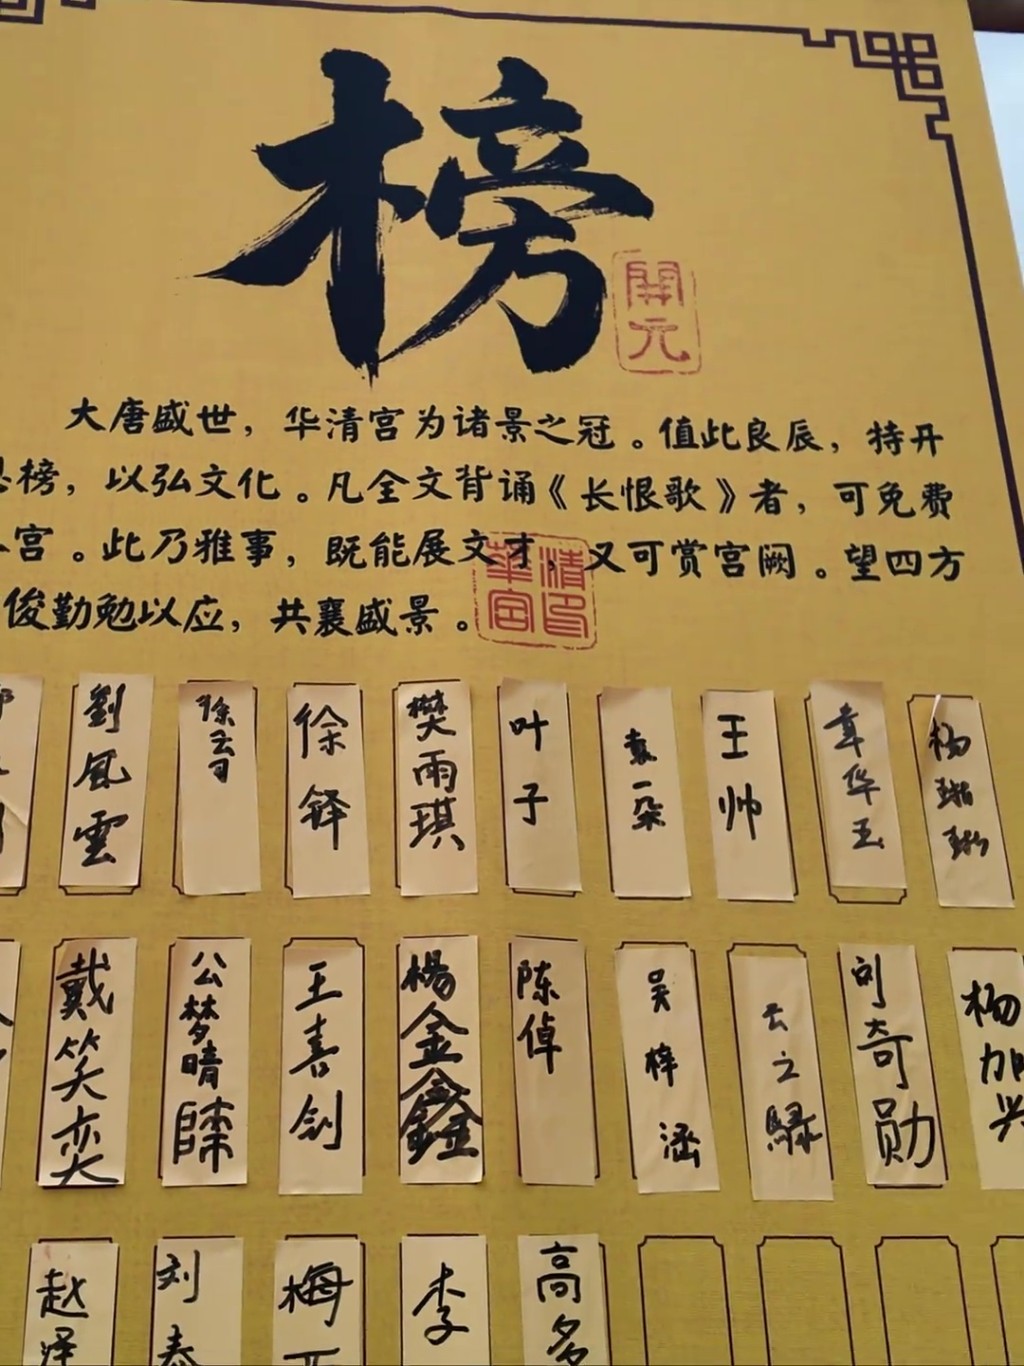 榜
開元
大唐盛世，华清宫为诸景之冠。值此良辰，特开
榜，以弘文化。凡全文背诵《长恨歌》者，可免费
宫。此乃雅事，既能展文才，又可赏宫阙。望四方
俊勤勉以应，共襄盛景。
華清宮印
劉風雲
徐云
徐铎
樊雨琪
叶子
袁一朵
王帅
章华玉
杨
戴笑奕
公梦晴
王喜剑
楊金鑫
陈倬
吴梓涵
云之緑
刘奇勋
杨加兴
赵泽
刘泰
梅
李
高名